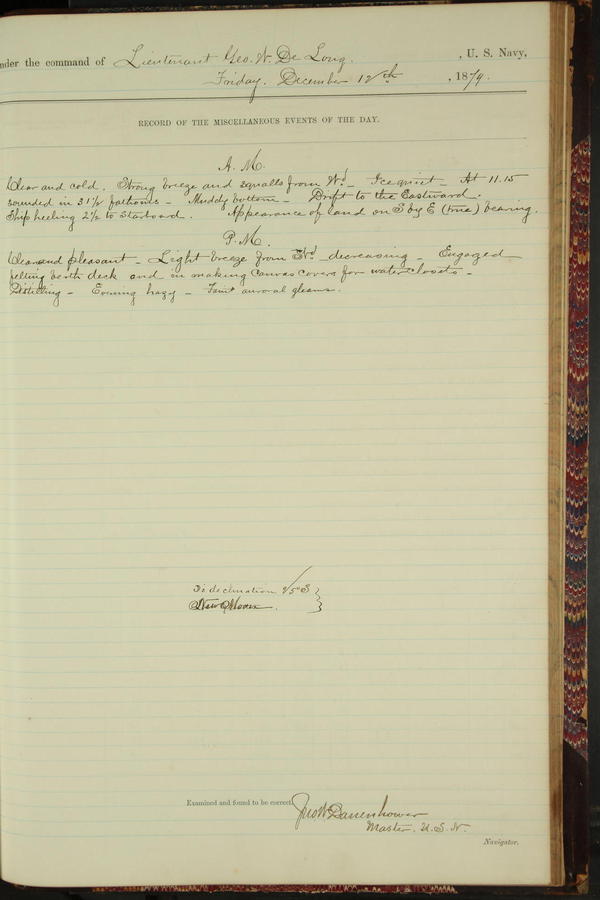 nder the command of Lieutenant Geo. W. De Long. , U. S. Navy,
Friday. December 12th , 1879.
RECORD OF THE MISCELLANEOUS EVENTS OF THE DAY.
A. M.
Clear and cold. Strong breeze and squalls from Wd. Ice quiet - At 11.15
sounded in 31 1/2 fathoms - Muddy bottom - Drift to the Eastward.
Ship heeling 2 1/2 to starboard. Appearance of land on S by E (true) bearing.
P. M.
Clear and pleasant - Light breeze from decreasing - Engaged
felting berth deck and in making canvas covers for water closets -
Distilling - Evening hazy - Faint auroral gleams.
declination S
New Moon.
Examined and found to be correct.
Jno W Danenhower
Master. U. S. N.
Navigator.